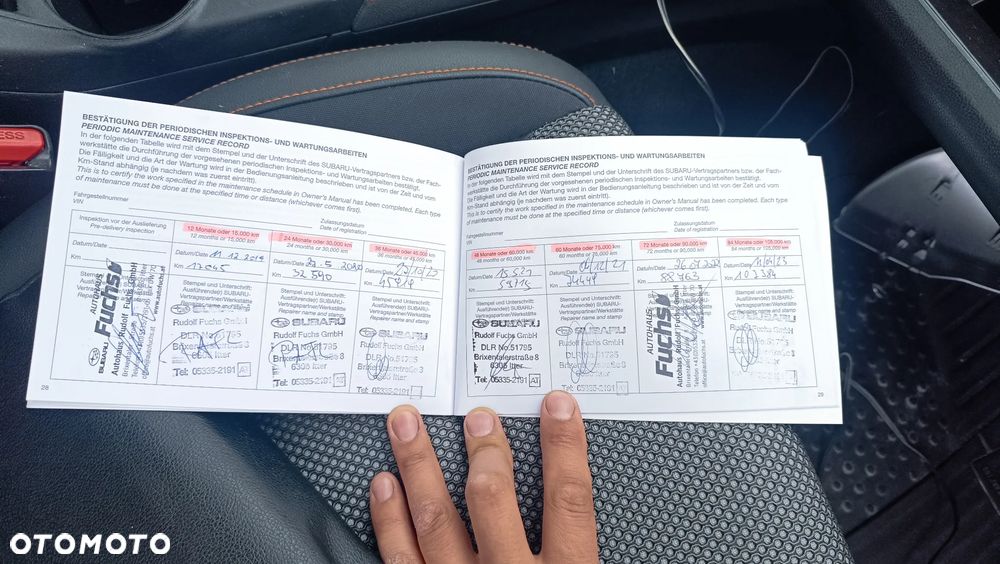 ESS
BESTÄTIGUNG DER PERIODISCHEN INSPEKTIONS- UND WARTUNGSARBEITEN
PERIODIC MAINTENANCE SERVICE RECORD
In der folgenden Tabelle wird mit dem Stempel und der Unterschrift des SUBARU-Vertragspartners bzw. der Fach-
werkstätte die Durchführung der vorgesehenen periodischen Inspektions- und Wartungsarbeiten bestätigt.
Die Fälligkeit und die Art der Wartung wird in der Bedienungsanleitung beschrieben und ist von der Zeit und vom
Km-Stand abhängig (je nachdem was zuerst eintritt).
This is to certify the work specified in the maintenance schedule in Owner's Manual has been completed. Each type
of maintenance must be done at the specified time or distance (whichever comes first).
Fahrgestellnummer
VIN
Zulassungsdatum
Date of registration
Inspektion vor der Auslieferung
Pre-delivery inspection
Datum/Date
Km
12 Monate oder 15,000 km
12 months or 15,000 km
Datum/Date 11.12.2019
Km 13045
Stempel und Unterschrift:
Ausführende(r) SUBARU-
Vertragspartner/Werkstätte
Repairer name and stamp
SUBARU
AUTOHAUS
Fuchs
Autohaus Rudolf Fuchs GmbH
SUBARU
Rudolf Fuchs GmbH
DLR No.51795
Brixentalerstraße 8
6305 Itter
Tel: 05335-2191 AT
24 Monate oder 30,000 km
24 months or 30,000 km
Datum/Date
Km 32540
Stempel und Unterschrift:
Ausführende(r) SUBARU-
Vertragspartner/Werkstätte
Repairer name and stamp
SUBARU
Rudolf Fuchs GmbH
DLR No.51795
Brixentalerstraße 8
6305 Itter
Tel: 05335-2191 AT
36 Monate oder 45,000 km
36 months or 45,000 km
Datum/Date
Km
Stempel und Unterschrift:
Ausführende(r) SUBARU-
Vertragspartner/Werkstätte
Repairer name and stamp
SUBARU
Rudolf Fuchs GmbH
DLR No.51795
Brixentalerstraße 8
6305 Itter
Tel: 05335-2191
28
BESTÄTIGUNG DER PERIODISCHEN INSPEKTIONS- UND WARTUNGSARBEITEN
PERIODIC MAINTENANCE SERVICE RECORD
In der folgenden Tabelle wird mit dem Stempel und der Unterschrift des SUBARU-Vertragspartners bzw. der Fach-
werkstätte die Durchführung der vorgesehenen periodischen Inspektions- und Wartungsarbeiten bestätigt.
Die Fälligkeit und die Art der Wartung wird in der Bedienungsanleitung beschrieben und ist von der Zeit und vom
Km-Stand abhängig (je nachdem was zuerst eintritt).
This is to certify the work specified in the maintenance schedule in Owner's Manual has been completed. Each type
of maintenance must be done at the specified time or distance (whichever comes first).
Fahrgestellnummer
VIN
Zulassungsdatum
Date of registration
48 Monate oder 60,000 km
48 months or 60,000 km
Datum/Date
Km
Stempel und Unterschrift:
Ausführende(r) SUBARU-
Vertragspartner/Werkstätte
Repairer name and stamp
SUBARU
Rudolf Fuchs GmbH
DLR No.51795
Brixentalerstraße 8
6305 Itter
Tel: 05335-2191 AT
60 Monate oder 75,000 km
60 months or 75,000 km
Datum/Date
Km
Stempel und Unterschrift:
Ausführende(r) SUBARU-
Vertragspartner/Werkstätte
Repairer name and stamp
SUBARU
Rudolf Fuchs GmbH
DLR No.51795
Brixentalerstraße 8
6305 Itter
Tel: 05335-2191 AT
72 Monate oder 90,000 km
72 months or 90,000 km
Datum/Date
Km 88763
Stempel und Unterschrift:
SUBARU
AUTOHAUS
Fuchs
Autohaus Rudolf Fuchs GmbH
84 Monate oder 105,000 km
84 months or 105,000 km
Datum/Date 11/04/23
Km 103384
Stempel und Unterschrift:
Ausführende(r) SUBARU-
Vertragspartner/Werkstätte
Repairer name and stamp
SUBARU
Rudolf Fuchs GmbH
DLR No.51795
Brixentalerstraße 8
6305 Itter
Tel: 05335-2191
29
OTOMOTO